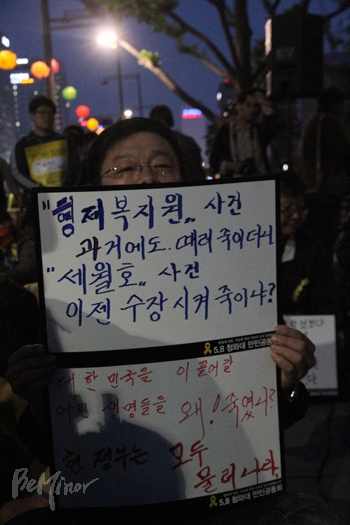 "형제복지원„ 사건
과거에도 때려 죽이더니
"세월호„ 사건
이젠 수장 시켜 죽이냐?
5.8 청와대 만민공동회
대한민국을 이끌어갈
어린 생명들을 왜! 죽였나?
현 정부는 모두
물러나라.
5.8 청와대 만민공동회
BeMinor